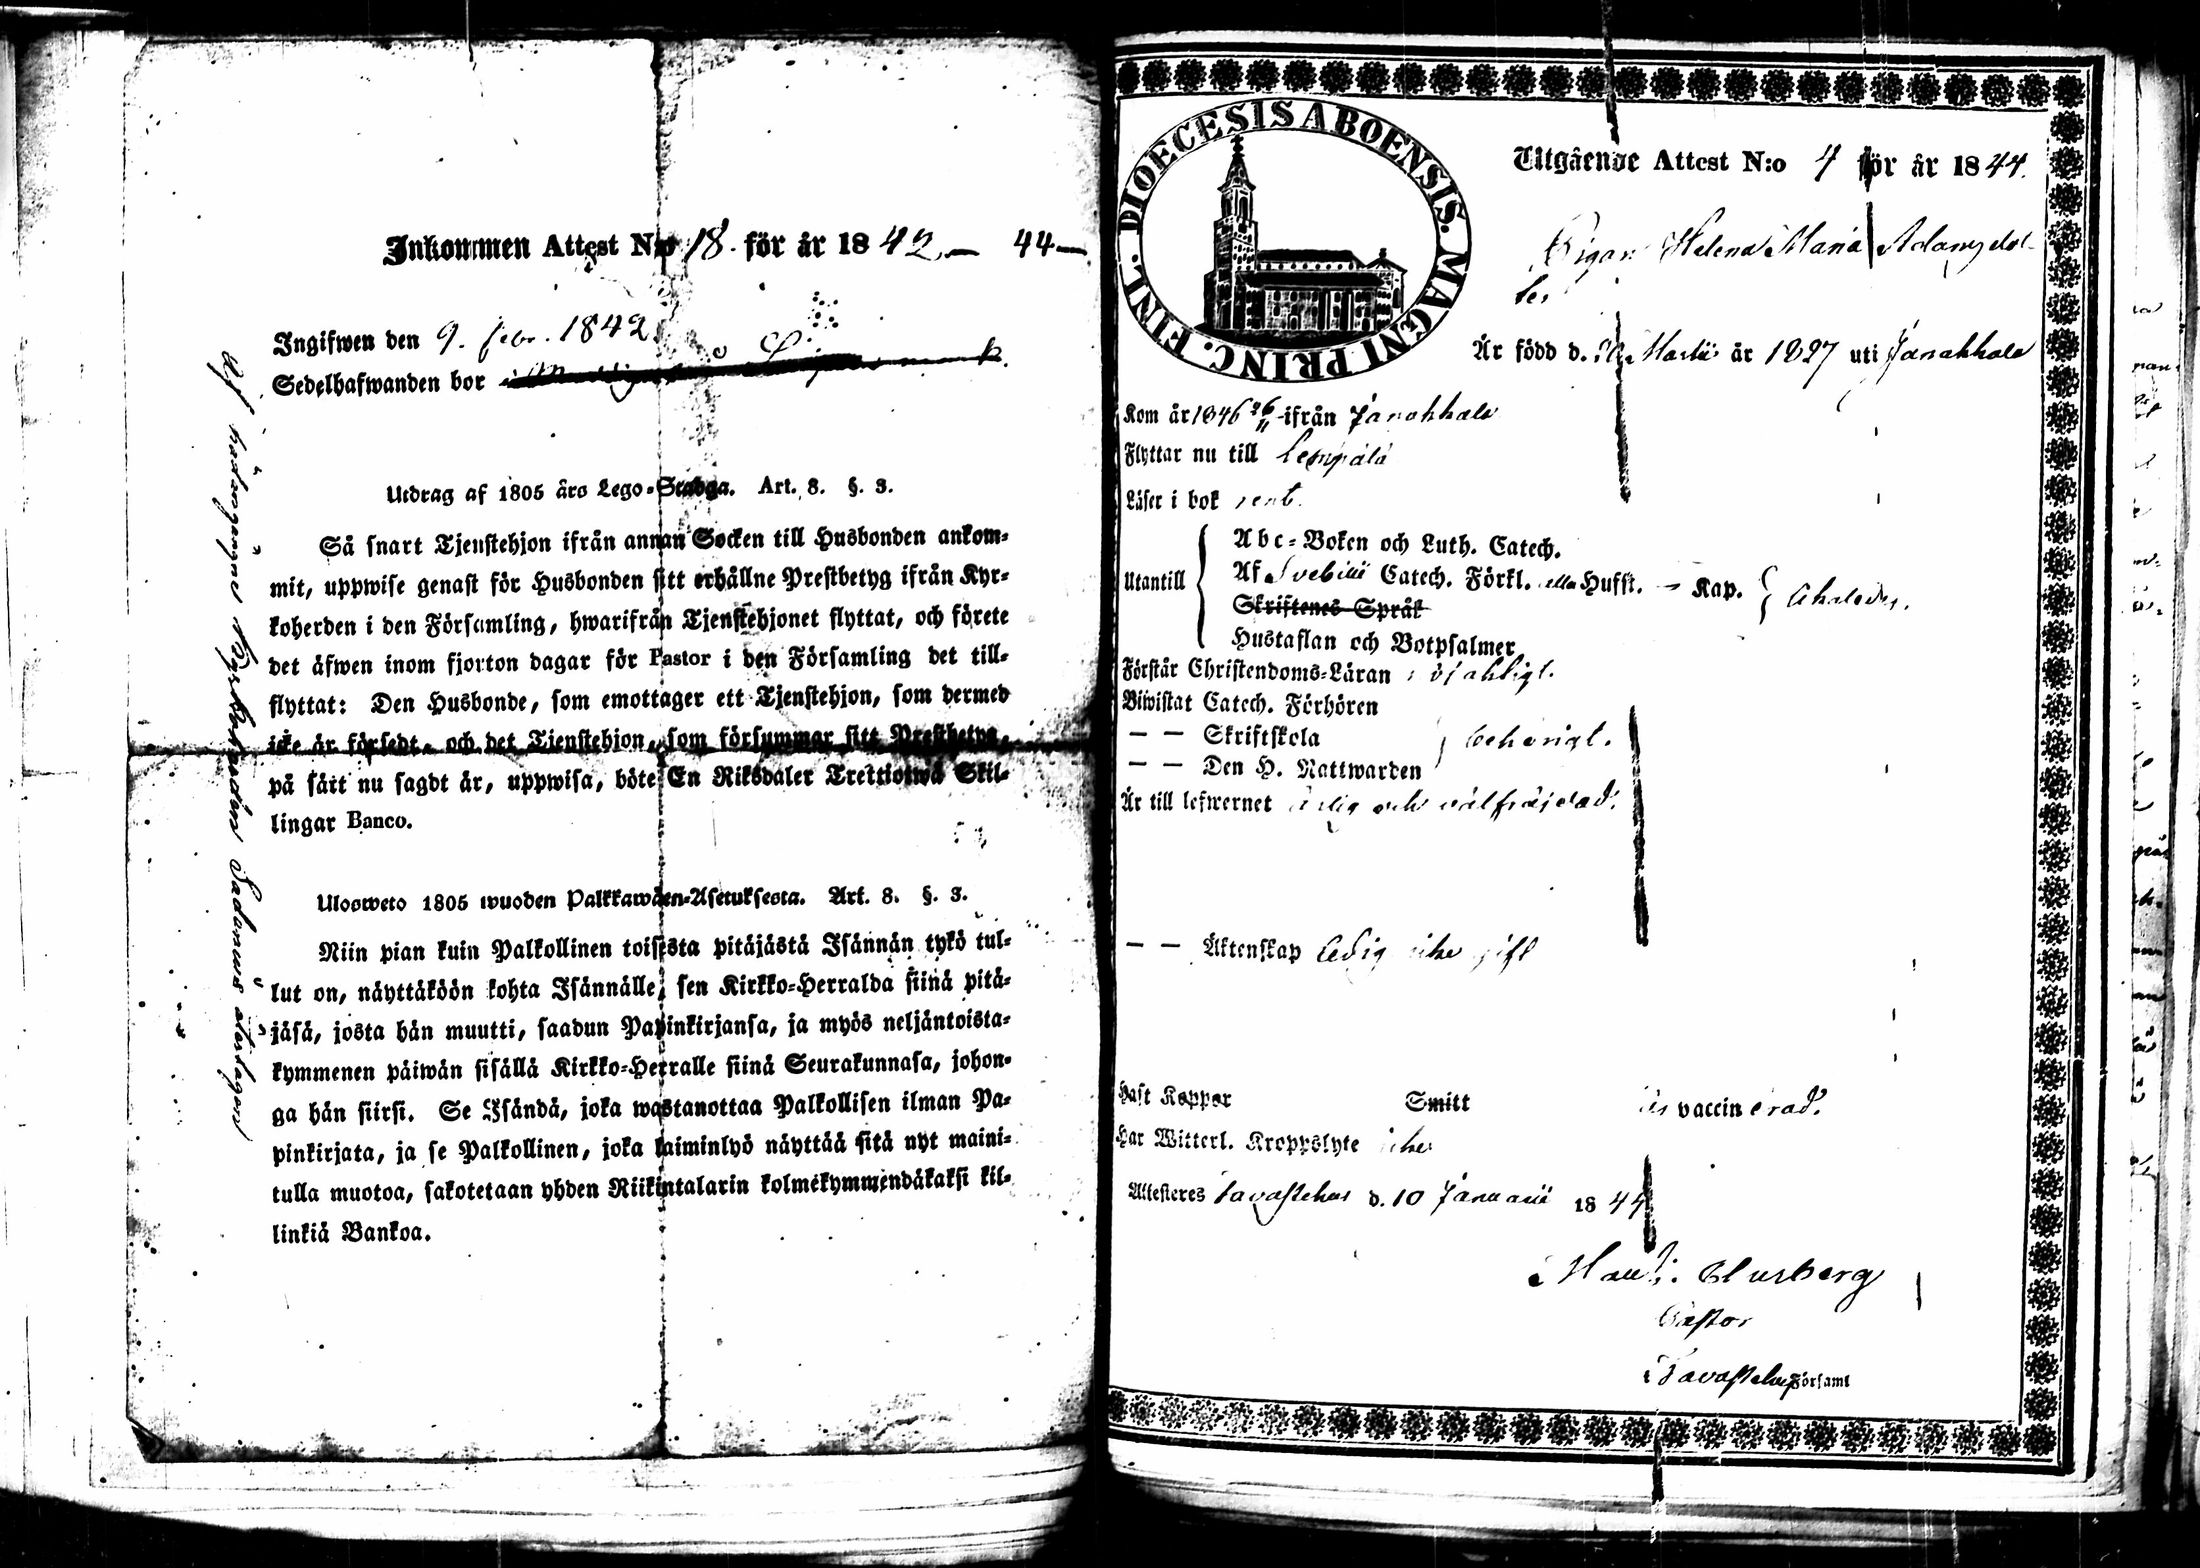 Inkommen Attest N:o 18. för år 1842.— 44—
Ingifwen den 9. febr. 1842
Sedelhafwanden bor
Utdrag af 1805 års Lego-Stadga. Art. 8. §. 3.
Så snart Tjenstehjon ifrån annan Socken till Husbonden ankom-
mit, uppwise genast för Husbonden sitt erhållne Prestbetyg ifrån Kyr-
koherden i den Församling, hwarifrån Tjenstehjonet flyttat, och förete
det äfwen inom fjorton dagar för Pastor i den Församling det till-
flyttat: Den Husbonde, som emottager ett Tjenstehjon, som dermed
icke är försedt, och det Tjenstehjon, som försummar sitt Prestbetyg,
på sätt nu sagdt är, uppwisa, böte En Riksdaler Trettiotwå Skil-
lingar Banco.
Ulosweto 1805 wuoden Palkkawäen-Asetuksesta. Art. 8. §. 3.
Niin pian kuin Palkollinen toisesta pitäjästä Isännän tykö tul-
lut on, näyttäköön kohta Isännälle, sen Kirkko-Herralda siinä pitä-
jäsä, josta hän muutti, saadun Papinkirjansa, ja myös neljäntoista-
kymmenen päiwän sisällä Kirkko-Herralle siinä Seurakunnasa, johon-
ga hän siirsi. Se Isändä, joka wastanottaa Palkollisen ilman Pa-
pinkirjata, ja se Palkollinen, joka laiminlyö näyttää sitä nyt maini-
tulla muotoa, sakotetaan yhden Riikintalarin kolmekymmendäkaksi kil-
linkiä Bankoa.
Af
DIOECESIS ABOENSIS. MAGNI PRINC. FINL.
Utgående Attest N:o 4 för år 1844.
Pigan Helena Maria Adamsdot-
ter
Är född d. Martii år 1827 uti Janakkala
Kom år 1846 26/11 ifrån Janakkala
Flyttar nu till Lempälä
Läser i bok rent.
Utantill
Abc-Boken och Luth. Catech.
Af Svebilii Catech. Förkl. eller Hufst. — Kap.
Skriftenes Språk
Hustaflan och Botpsalmer
Förstår Christendoms-Läran nöjaktigt.
Biwistat Catech. Förhören
— — Skriftskola behörigt.
— — Den H. Nattwarden
Är till lefwernet ärlig och välfräjdad.
— — Äktenskap ledig icke gift
Haft Koppor Smitt är vaccinerad.
Har Witterl. Kroppslyte icke
Attesteres Tavastehus d. 10 Januarii 1844
Pastor
Tavastehus Församl